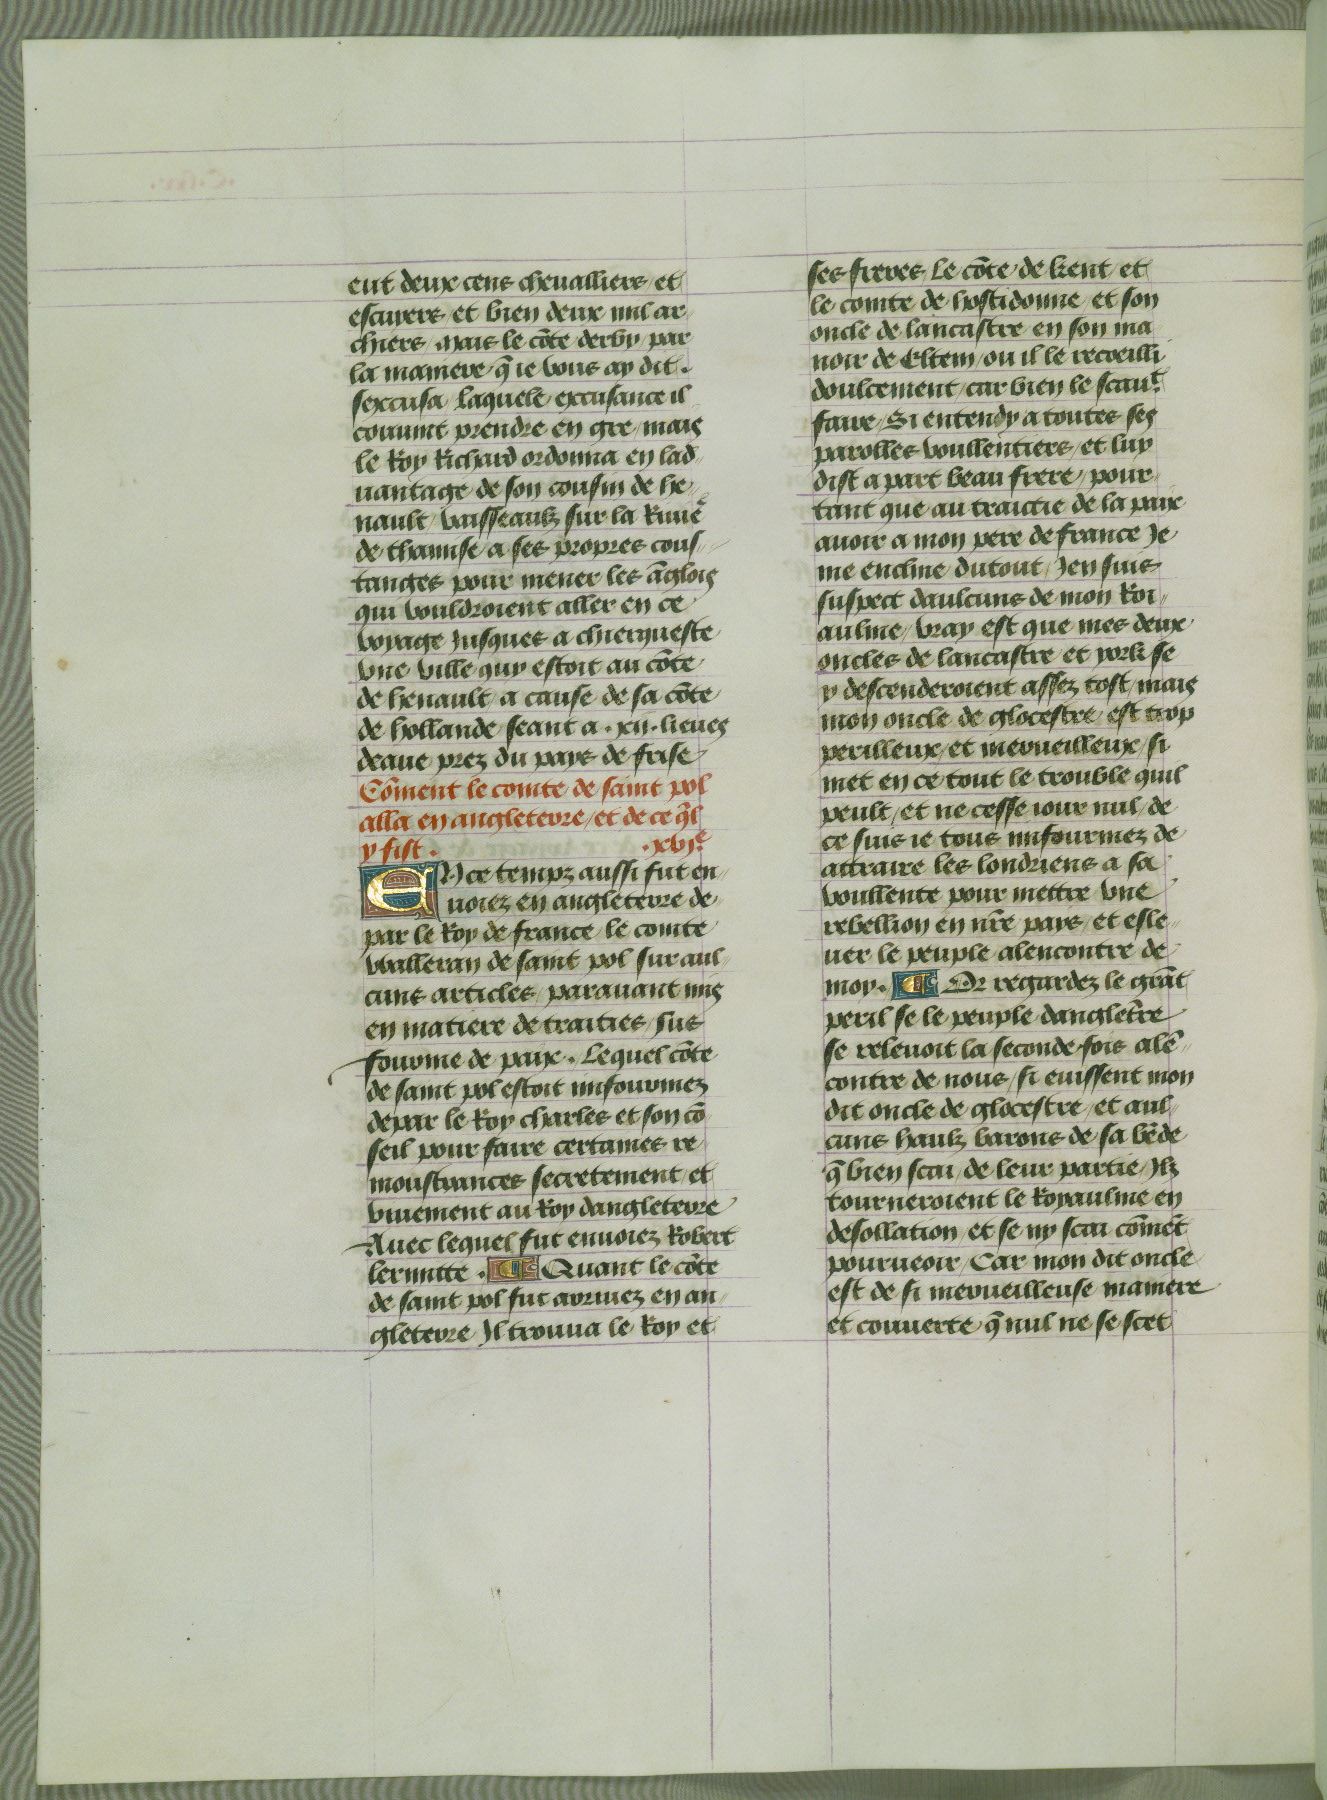 eut deux cens cheualliers et
escuiers et bien deux mil ar
chiers / mais le cõte derby / par
la maniere q̃ ie vous ay dit .
sexcusa / laquele excusance il
conuint prendre en gre / mais
le Roy Richard ordonna en lad
uantage de son cousin de he
nault / vaisseaulz sur la Riuiẽ
de thamise a ses propres cous
tanges pour mener les ãglois
qui vouldroient aller en ce
voyage Jusques a chierqueste
vne ville quy estoit au cõte
de henault / a cause de sa cõte
de hollande / seant a . xii . lieues
deaue prez du pays de frise
Cõment le comte de saint pol
alla en angleterre / et de ce q̃l
y fist . . xvjͤ
EN ce tempz aussi fut en
uoiez en angleterre de
par le Roy de france / le comte
walleran de saint pol sur aul
cuns articles parauant mis
en matiere de traities / sus
fourme de paix . Lequel cõte
de saint pol estoit infourmez
depar le Roy charles et son cõ
seil pour faire certaines re
moustrances secretement et
viuement au Roy dangleterre
Auec lequel fut enuoiez Robert
lermitte . ¶ Quant le cõte
de saint pol fut arriuez en an
gleterre Il trouua le Roy et
ses freres / le cõte de kent / et
le comte de hostidonne / et son
oncle de lancastre en son ma
noir de Eltem / ou il le recoeilli
doulcement / car bien le scauͭ
faire / Si entendy a toutes ses
parolles voullentiers / et luy
dist a part beau frere / pour
tant que au traictie de la paix
auoir a mon pere de france Je
me encline dutout / Jen suis
suspect daulcuns de mon Roi
aulme / vray est que mes deux
oncles de lancastre et york se
y descenderoient assez tost / mais
mon oncle de glocestre / est trop
perilleux / et merueilleux / si
met en ce tout le trouble quil
peult / et ne cesse iour nul / de
ce suis ie tous infourmez de
attraire les londriens a sa
voullente pour mettre vne
rebellion en nr̃e pays / et esle
uer le peuple alencontre de
moy . ¶ Or regardez le grãt
peril se le peuple dangletẽre
se releuoit la seconde fois alẽ
contre de nous / si euissent mon
dit oncle de glocestre / et aul
cuns haulz barons de sa bẽde
q̃ bien scai / de leur partie / Ilz
tourneroient le Royaulme en
desollation / et se ny scai cõmẽt
pourueoir / Car mon dit oncle
est de si merueilleuse maniere
et couuerte q̃ nul ne se scet